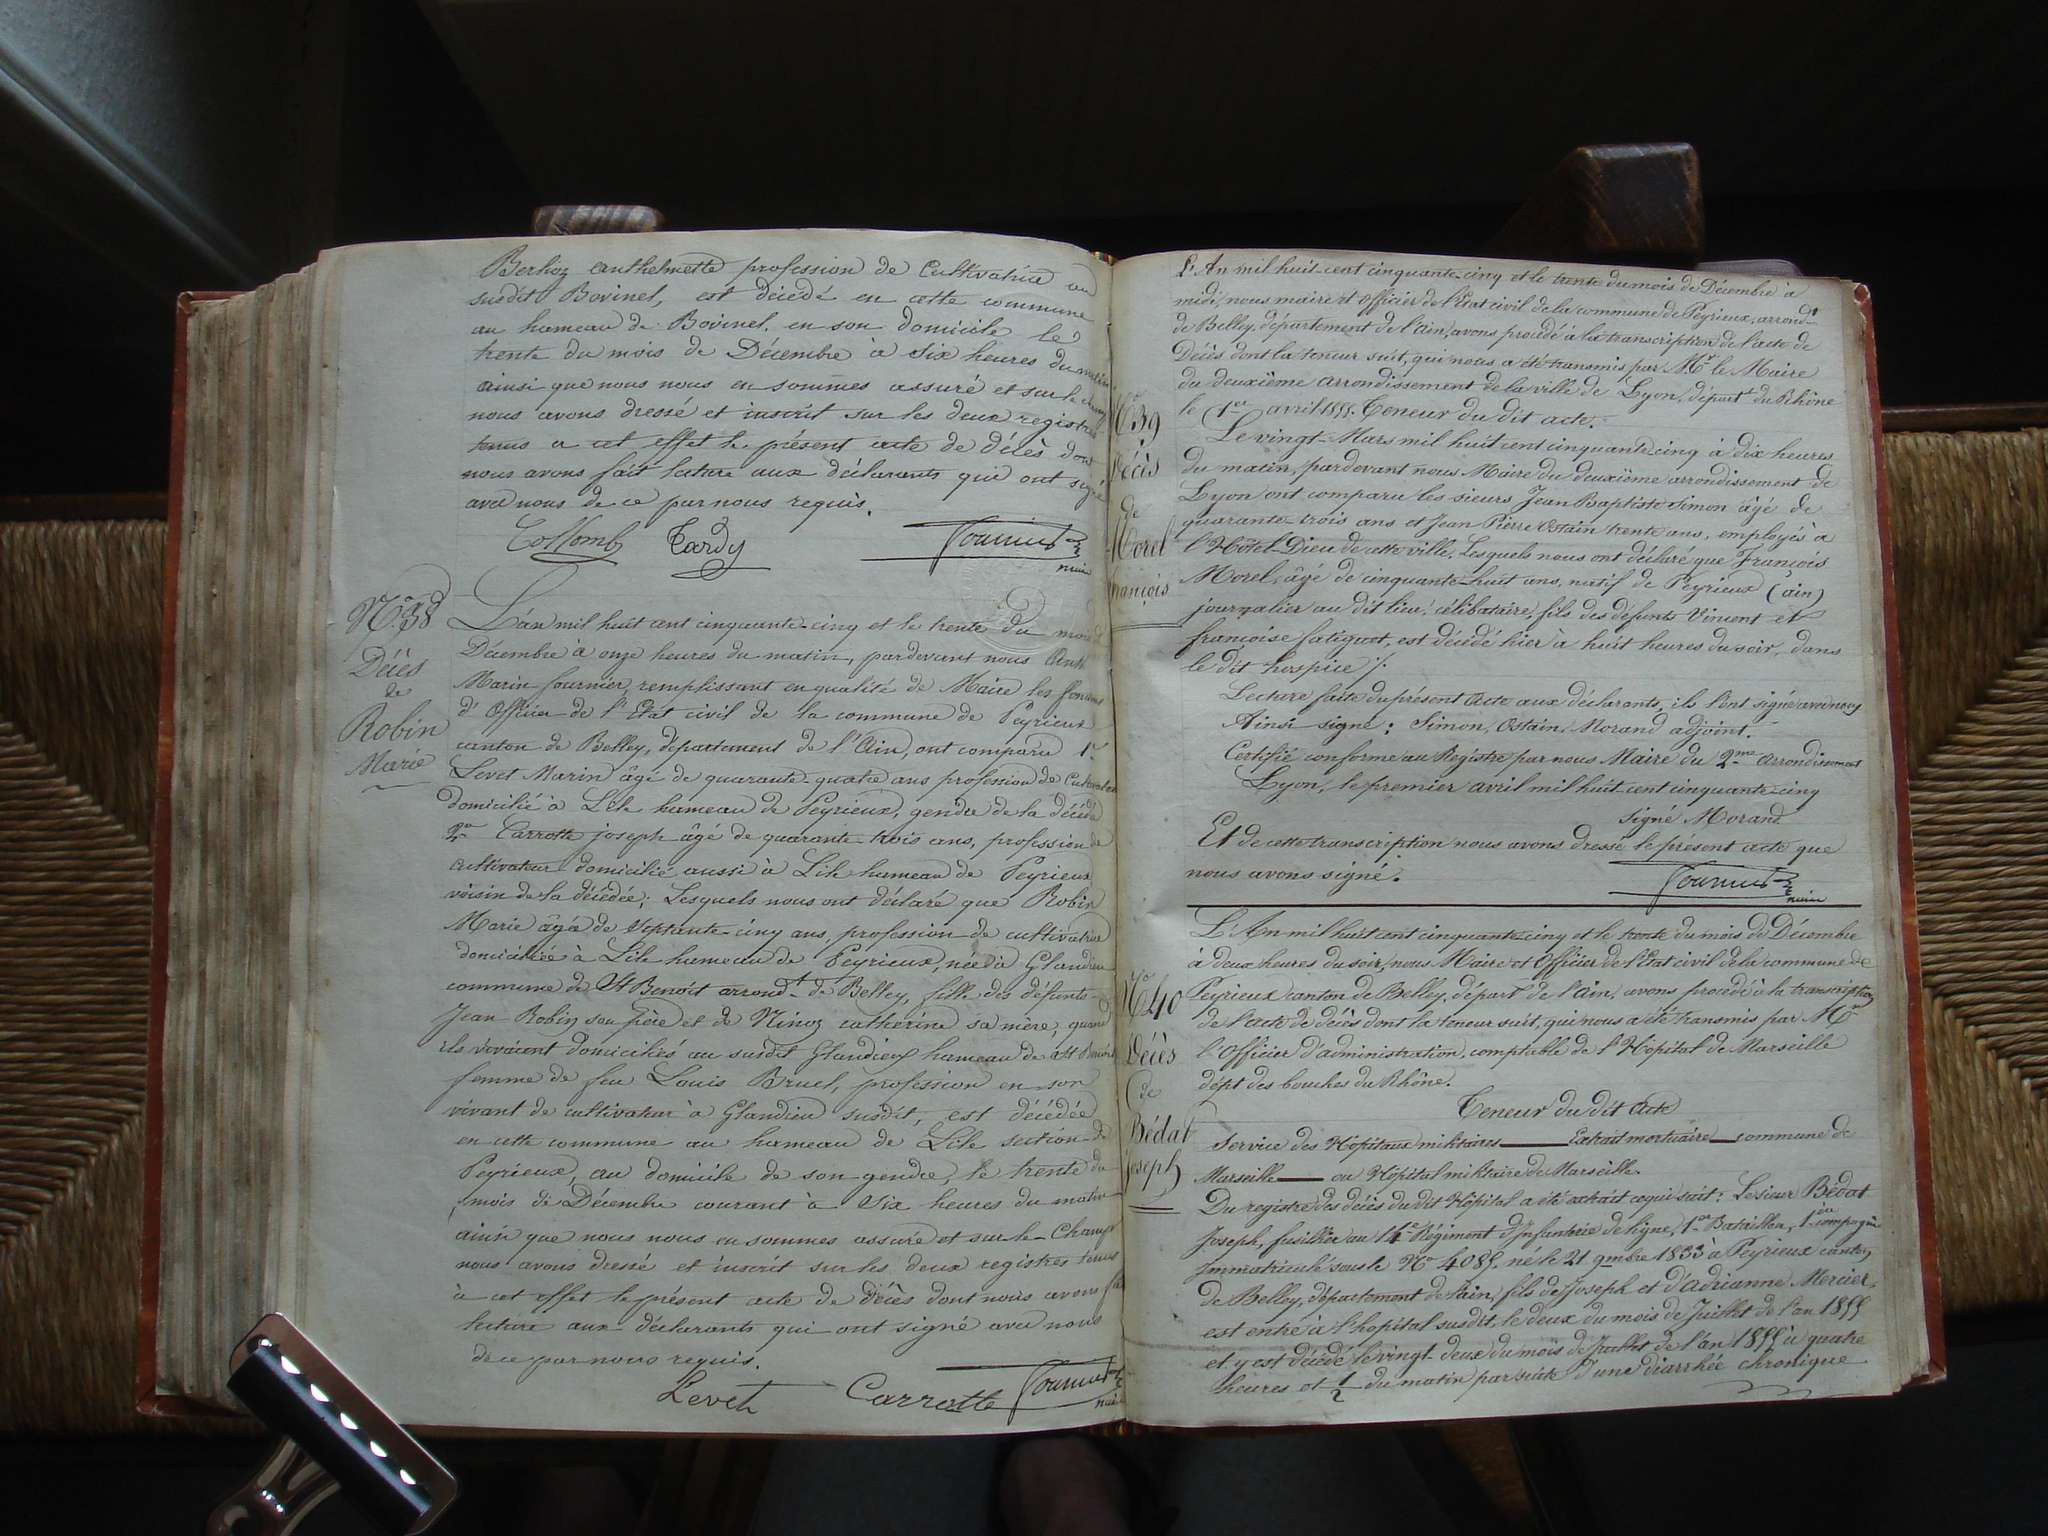 Berlioz anthelmette profession de Cultivatrice au
susdit Bovinel, est décédé en cette commune
au hameau de Bovinel, en son domicile le
trente du mois de Décembre à six heures du matin
ainsi que nous nous en sommes assuré et sur le champ
nous avons dressé et inscrit sur les deux registres
tenus a cet effet le présent acte de décès dont
nous avons fait lecture aux déclarants qui ont signé
avec nous de ce par nous requis.
Collomb Tardy Fournier
maire
N.º 38
Décès
de
Robin
Marie
L'an mil huit cent cinquante-cinq et le trente du mois de
Décembre à onze heures du matin, pardevant nous
Marin fournier, remplissant en qualité de Maire les
d'Officier de l'Etat civil de la commune de Peyrieux
canton de Belley, département de l'Ain, ont comparu 1º
Levet Marin âgé de quarante-quatre ans profession de Cultivateur
domicilié à Lile hameau de Peyrieux, gendre de la décédée
2º Carrotte joseph âgé de quarante trois ans, profession de
cultivateur domicilié aussi à Lile hameau de Peyrieux
voisin de la décédée; Lesquels nous ont déclaré que Robin
Marie âgée de septante-cinq ans, profession de cultivatrice
domiciliée à Lile hameau de Peyrieux, née à Glandieu
commune de St Benoit arrondt de Belley, fille des défunts
Jean Robin son père et de Ninoz catherine sa mère, quand
ils vivaient domiciliés au susdit Glandieu hameau de St Benoit
femme de feu Louis Bruel, profession en son
vivant de cultivateur à Glandieu susdit, est décédée
en cette commune au hameau de Lile section de
Peyrieux, au domicile de son gendre, le trente du
mois de Décembre courant à six heures du matin
ainsi que nous nous en sommes assuré et sur le Champ
nous avons dressé et inscrit sur les deux registres tenus
à cet effet le présent acte de décès dont nous avons fait
lecture aux déclarants qui ont signé avec nous
de ce par nous requis.
Levet Carrotte Fournier
maire
L'An mil huit cent cinquante cinq et le trente du mois de Décembre à
midi, nous maire et officier de l'Etat civil de la commune de Peyrieux, arrondt
de Belley, département de l'Ain, avons procédé à la transcription de l'acte de
Décès dont la teneur suit, qui nous a été transmis par Mr le Maire
du deuxième arrondissement de la ville de Lyon, départt du Rhône
le 1er avril 1855. Teneur du dit acte.
Nº 39
Décès
de
Morel
françois
Le vingt Mars mil huit cent cinquante cinq à dix heures
du matin, pardevant nous Maire du deuxième arrondissement de
Lyon ont comparu les sieurs Jean Baptiste Simon âgé de
quarante-trois ans et Jean Pierre Ostain trente ans, employés à
l'Hôtel-Dieu de cette ville, Lesquels nous ont déclaré que François
Morel, âgé de cinquante-huit ans, natif de Peyrieux (ain)
journalier au dit lieu, célibataire, fils des défunts Vincent et
françoise Catiguot, est décédé hier à huit heures du soir, dans
le dit hospice /.
Lecture faite du présent Acte aux déclarants, ils l'ont signé avec nous
Ainsi signé: Simon, Ostain, Morand adjoint.
Certifié conforme au Registre par nous Maire du 2me arrondissement
Lyon, le premier avril mil huit cent cinquante-cinq
signé Morand
Et de cette transcription nous avons dressé le présent acte que
nous avons signé.
Fournier
maire
Nº 40
Décès
de
Bédat
Joseph
L'An mil huit cent cinquante cinq et le trente du mois de Décembre
à deux heures du soir, nous Maire et Officier de l'Etat civil de la commune de
Peyrieux canton de Belley, départt de l'Ain, avons procédé à la transcription
de l'acte de décès dont la teneur suit, qui nous a été transmis par Mr
l'Officier d'administration, comptable de l'Hôpital de Marseille
dépt des bouches du Rhône.
Teneur du dit Acte
Service des Hôpitaux militaires — Extrait mortuaire — commune de
Marseille — ou Hôpital militaire de Marseille.
Du registre des décès du dit Hôpital a été extrait ce qui suit: Le sieur Bédat
Joseph, fusilier au 14e Régiment d'Infanterie de ligne, 1er Bataillon, 1ère compagnie
Immatriculé sous le Nº 4085, né le 21 9mbre 1833 à Peyrieux canton
de Belley, département de l'ain, fils de Joseph et d'Adrianne Mercier,
est entré à l'hopital susdit, le deux du mois de Juillet de l'an 1855
et y est décédé le vingt-deux du mois de Juillet de l'an 1855 à quatre
heures et 1/2 du matin par suite d'une diarrhée chronique